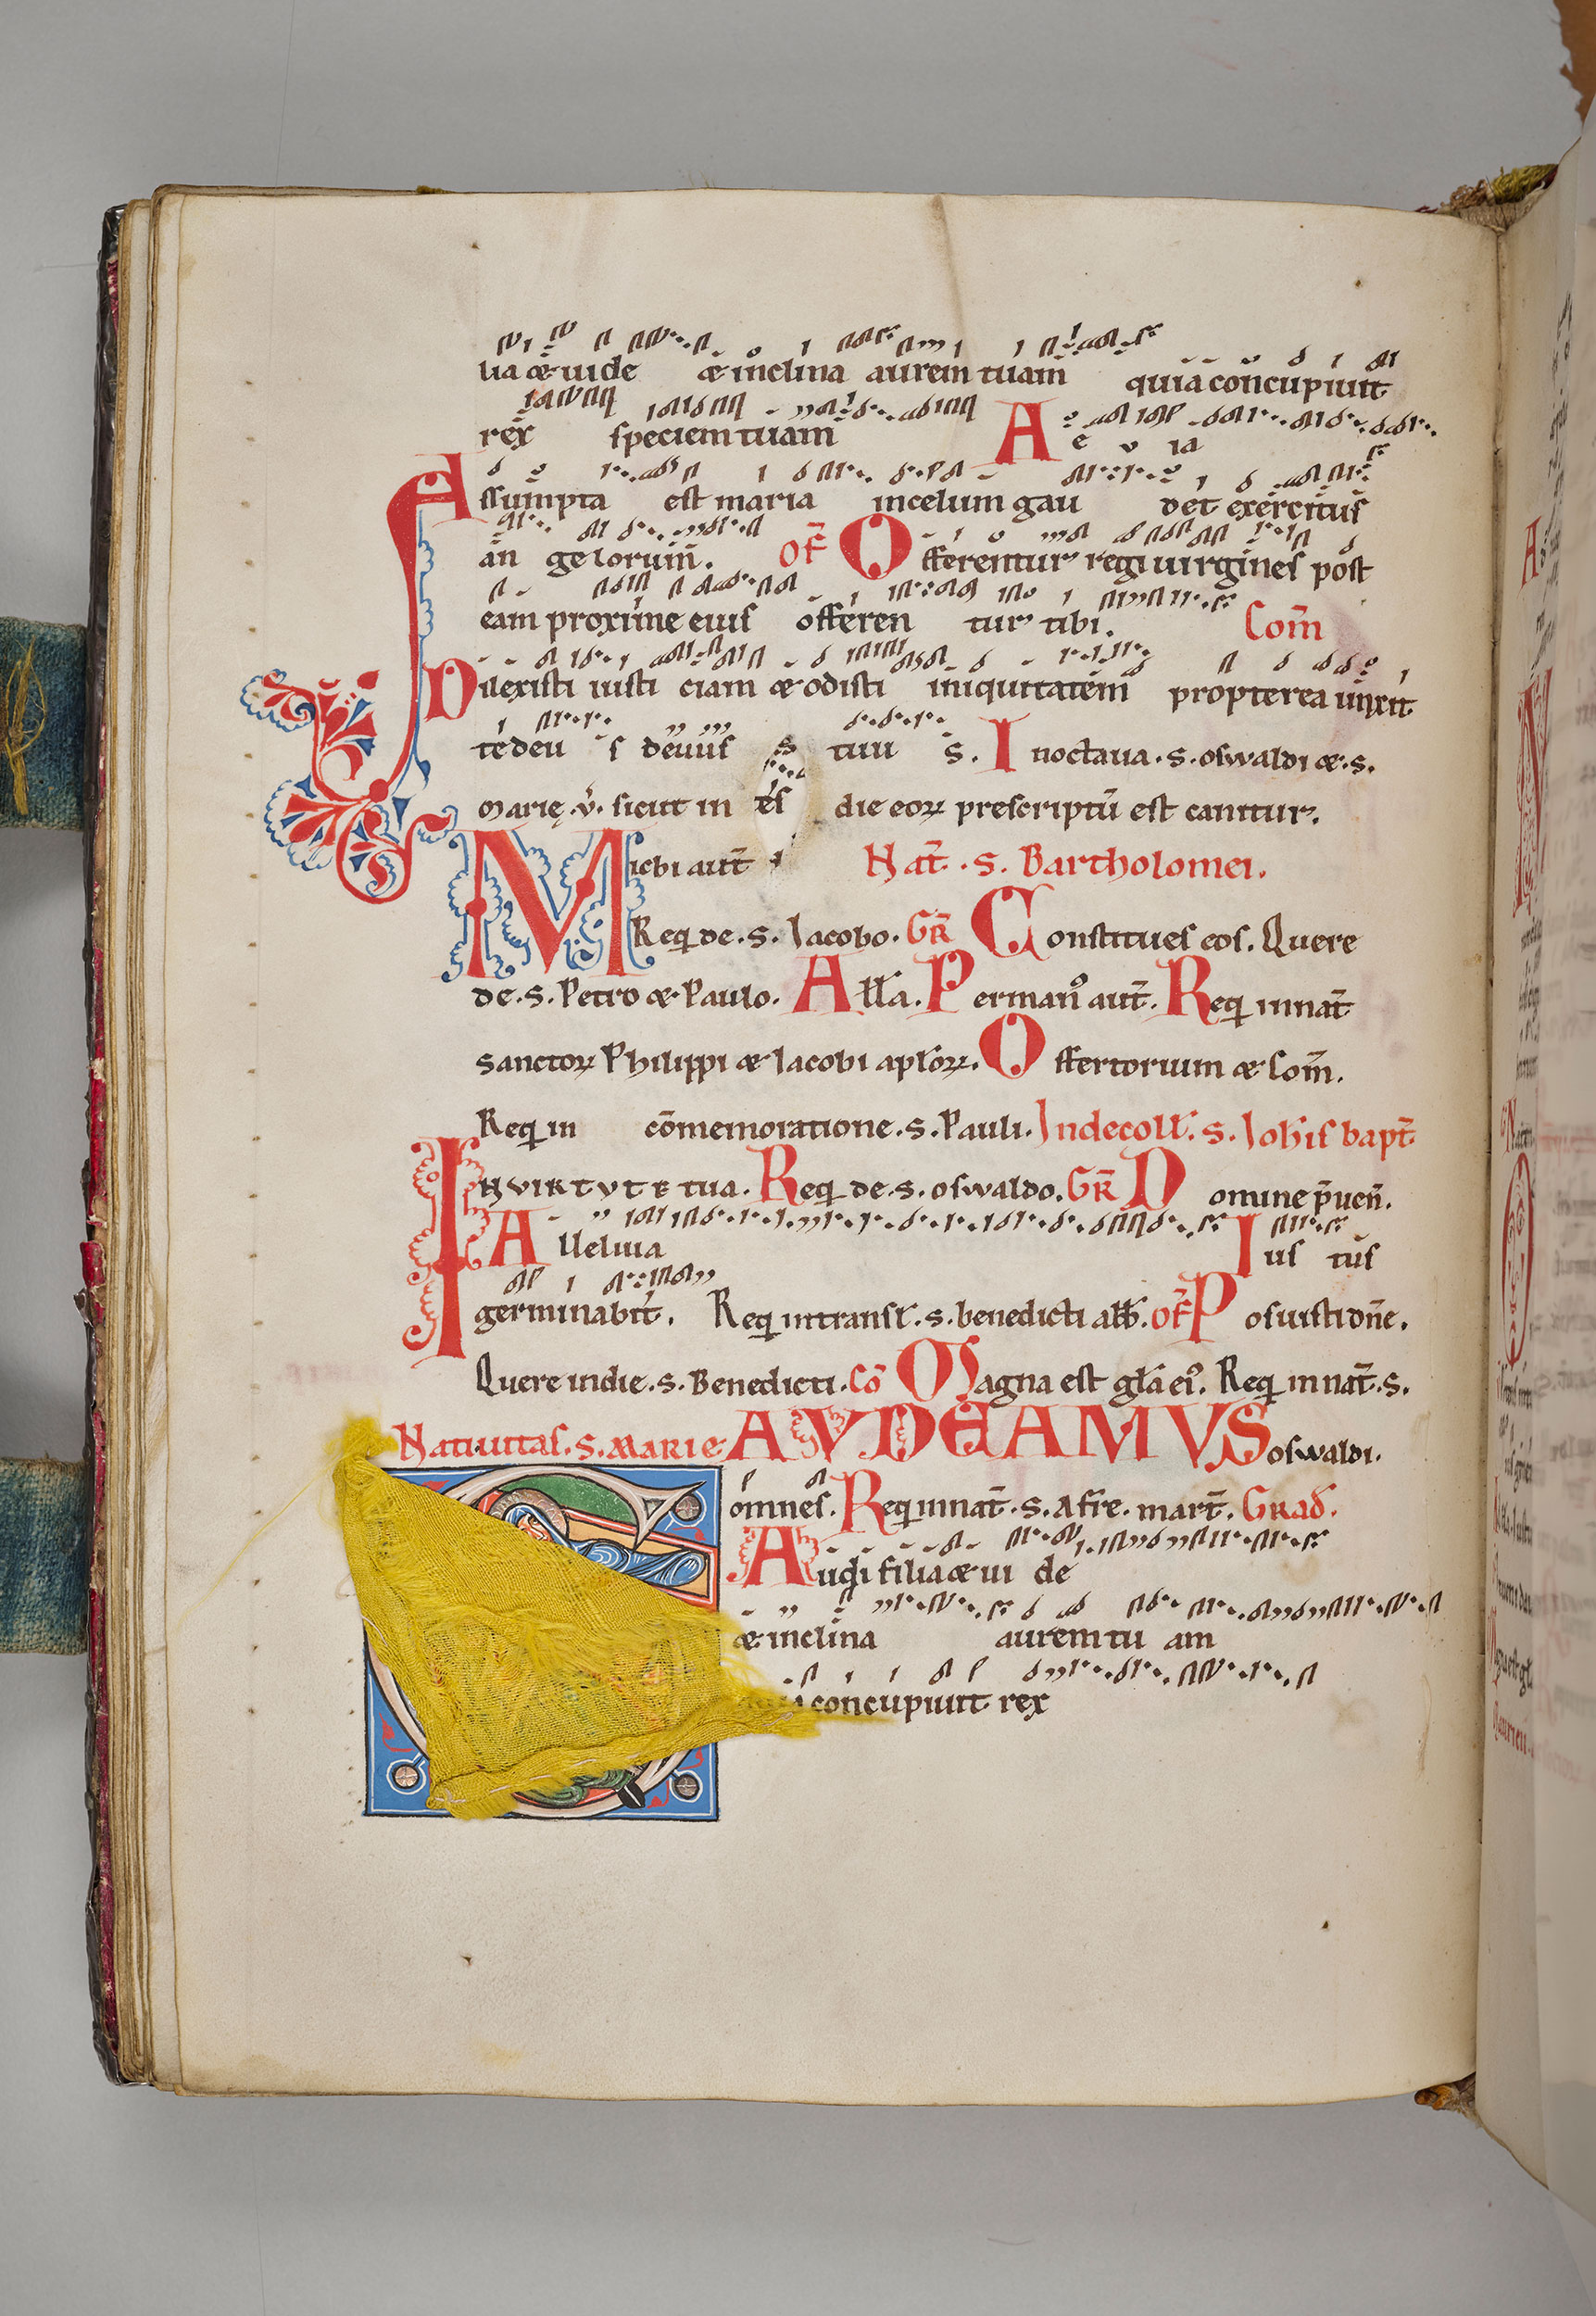 lia & uide & inclina aurem tuam quia concupiuit
rex speciem tuam A e v ia
Assumpta est maria incelum gau det exercitus
an gelorum. OF Offerentur regi uirgines post
eam proxime eius offeren tur tibi. Com̄
Dilexisti iusti ciam & odisti iniquitatem propterea unxit
te deu s deuus s tuu s. In octaua . s . oswaldi & . s.
Marię . v̄ . sicut in es die eoꝝ prescriptū est canitur.
Michi aut̄ Nat̄ . s. Bartholomei.
Req̄ de . s. Iacobo. GR̄ Constitues eos. Quere
de . s. Petro & Paulo. All̄a. Permanꝰ aut̄. Req̄ innat̄
sanctoꝝ Philippi & Iacobi apl̄oꝝ. Offertorium & Com̄.
Req̄ in cōmemoratione . s. Pauli. Indecoll̄. s. Ioh̄is bapt̄
IN VIRTVTE tua. Req̄ de . s. oswaldo. GR̄ Domine p̄uen̄.
Alleluia Ius tus
germinabit. Req̄ intransl̄. s. benedicti abb̄. OF̄ Posuisti dn̄e.
Quere indie . s. Benedicti. Cō Magna est gl̄a eiꝰ. Req̄ innat̄ . s.
Natiuitas. s. MARIE AVDEAMVS oswaldi.
omnes. Req̄ innat̄ . s. Afre. mart̄. Grad̄.
Audi filia & ui de
& inclina aurem tu am
concupiuit rex